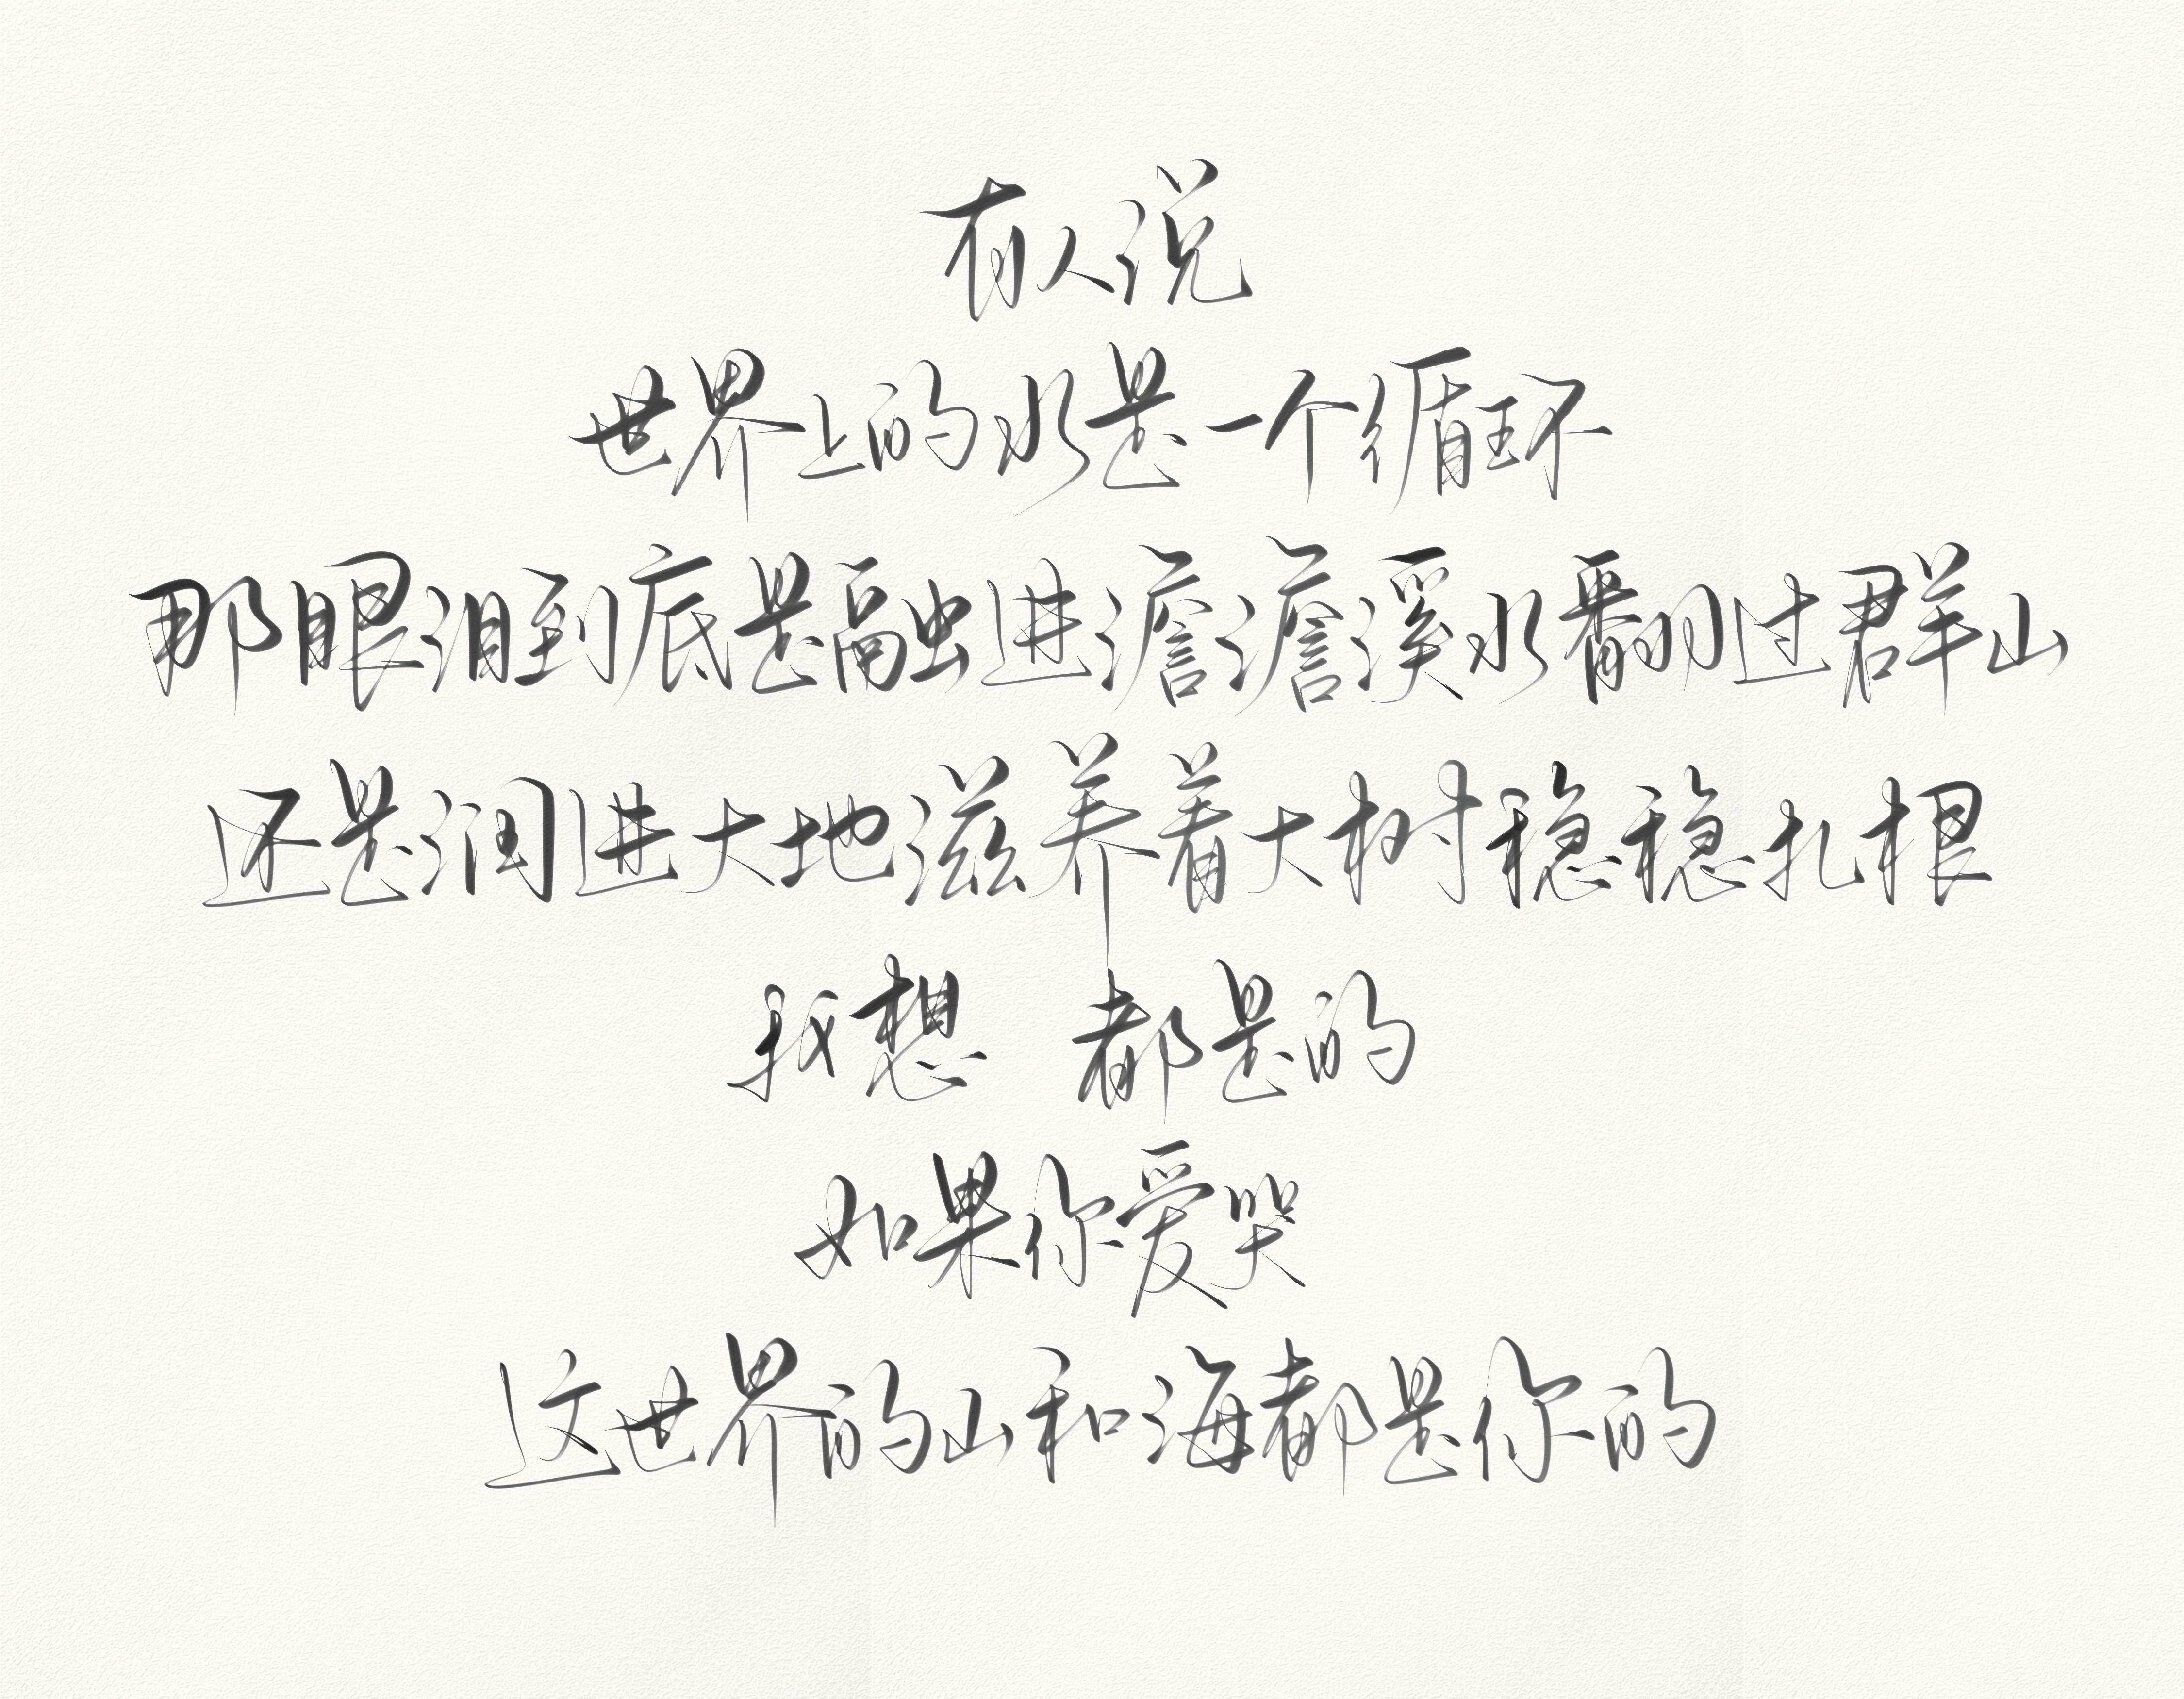 有人说
世界上的水是一个循环
那眼泪到底是融进澹澹溪水翻过群山
还是润进大地滋养着大树稳稳扎根
我想 都是的
如果你爱哭
这世界的山和海都是你的